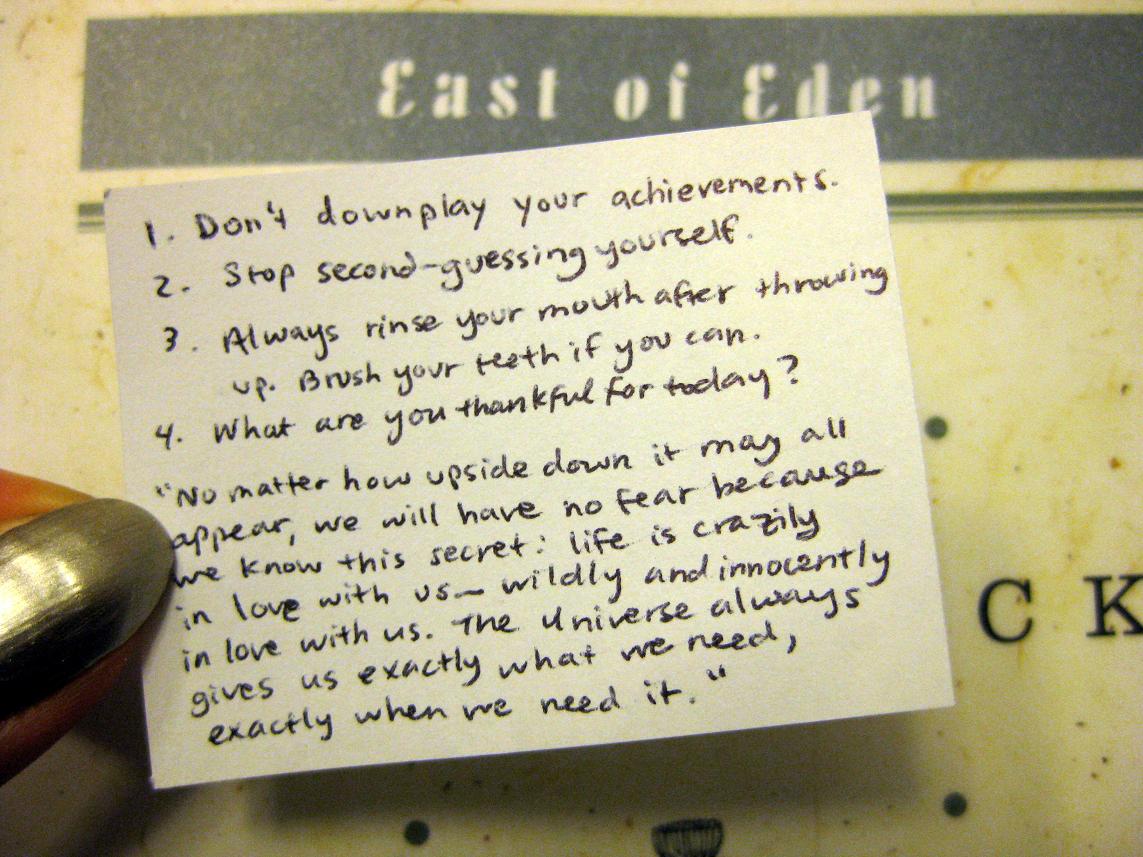 East of Eden
1. Don't downplay your achievements.
2. Stop second-guessing yourself.
3. Always rinse your mouth after throwing
up. Brush your teeth if you can.
4. What are you thankful for today?
"No matter how upside down it may all
appear, we will have no fear because
we know this secret: life is crazily
in love with us— wildly and innocently
in love with us. The Universe always
gives us exactly what we need,
exactly when we need it."
CK